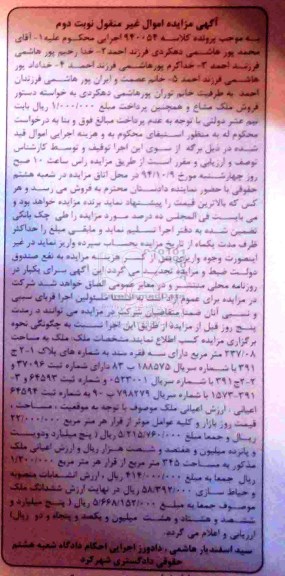 آگهی مزایده اموال غیر منقول نوبت دوم
به موجب پرونده کلاسه ۹۴۰۰۵۴ اجرایی محکوم علیه ۱- آقای
محمد پور هاشمی دهکردی فرزند احمد ۲- خدا رحیم پور هاشمی
فرزند احمد ۳- خداکرم پورهاشمی فرزند احمد ۴- خداداد پور
هاشمی فرزند احمد ۵- خانم عصمت و ایران پور هاشمی فرزندان
احمد به طرفیت خانم توران پورهاشمی دهکردی به خواسته دستور
فروش ملک مشاع و همچنین پرداخت مبلغ ۱/۰۰۰/۰۰۰ ریال بابت
نیم عشر دولتی با توجه به عدم پرداخت مبالغ فوق و بنا به درخواست
محکوم له به منظور استیفای محکوم به و هزینه اجرایی اموال قید
شده در ذیل برگه از سوی این اجرا توقیف و توسط کارشناس
توصیف و ارزیابی و مقرر است از طریق مزایده راس ساعت ۱۰ صبح
روز چهارشنبه مورخ ۹۴/۱۰/۹ در محل اتاق مزایده در شعبه هشتم
حقوقی با حضور نماینده دادستان محترم به فروش می رسد و هر
کس که بالاترین قیمت را پیشنهاد نماید برنده مزایده خواهد بود و
می بایست فی المجلس ده درصد مورد مزایده را طی چک بانکی
تضمین شده به دفتر اجرا تسلیم نماید و مابقی مبلغ را حداکثر
ظرف مدت یکماه از تاریخ مزایده بحساب سپرده واریز نماید در غیر
اینصورت وجوه واریزی پس از کسر هزینه مزایده به نفع صندوق
دولت ضبط و مزایده تجدید می گردد این آگهی برای یکبار در
روزنامه محلی منتشر و در معابر عمومی الصاق خواهد شد شرکت
در مزایده برای عموم آزاد است مسئولین اجرا اقربای سببی
و نسبی آنان ضمنا متقاضیان شرکت در مزایده می توانند در مدت
پنج روز قبل از مزایده از طریق این اجرا نسبت به چگونگی نحوه
برگزاری مزایده کسب اطلاع نمایند. مشخصات ملک ملک به مساحت
۲۳۷/۰۸ متر مربع دارای سه فقره سند به شماره های پلاک ۱-۲ ج
۳۹۱ با شماره سریال ۱۸۸۵۷۵ ب ۸۳ دارای شماره ثبت ۳۷۰۹۶ و
۲-۲ج ۳۹۱ با شماره سریال ۵۲۳۰۰۱ و شماره ثبت ۶۴۵۹۳ و ۳-
۱۵۷۳-۳۹۱ با شماره سریال ۷۹۸۲۷۹ ب ۹۰ به شماره ثبت ۶۴۵۹۴
اعیانی : ارزش اعیانی ملک موصوف با توجه به موقعیت ، مساحت ،
قیمت روز بازار و کلیه عوامل موثر از قرار هر متر مربع ۲۲/۰۰۰/۰۰۰
ریال و جمعا مبلغ ۵/۲۱۵/۷۶۰/۰۰۰ ریال ( پنج میلیارد و دویست
و پانزده میلیون و هفتصد و شصت هزار ریال و ارزش اعیانی ملک
مذکور به مساحت ۳۴۵ متر مربع از قرار هر متر مربع ۱/۲۰۰/۰۰۰
ریال جمعا به مبلغ ۴۱۴/۰۰۰/۰۰۰ ریال ، ارزش انشعابات منصوبه
و حیاط سازی ۵۸/۳۹۲/۰۰۰ ریال در نهایت ارزش ششدانگ ملک
موصوف جمعا به مبلغ ۵/۶۶۸/۱۵۲/۰۰۰ ریال ( پنج میلیارد و
ششصد و هشتاد و هشت میلیون و یکصد و پنجاه و دو ریال)
ارزیابی و اعلام می گردد.
سید اسفندیار هاشمی ، دادورز اجرایی احکام دادگاه شعبه هشتم
حقوقی دادگستری شهرکرد